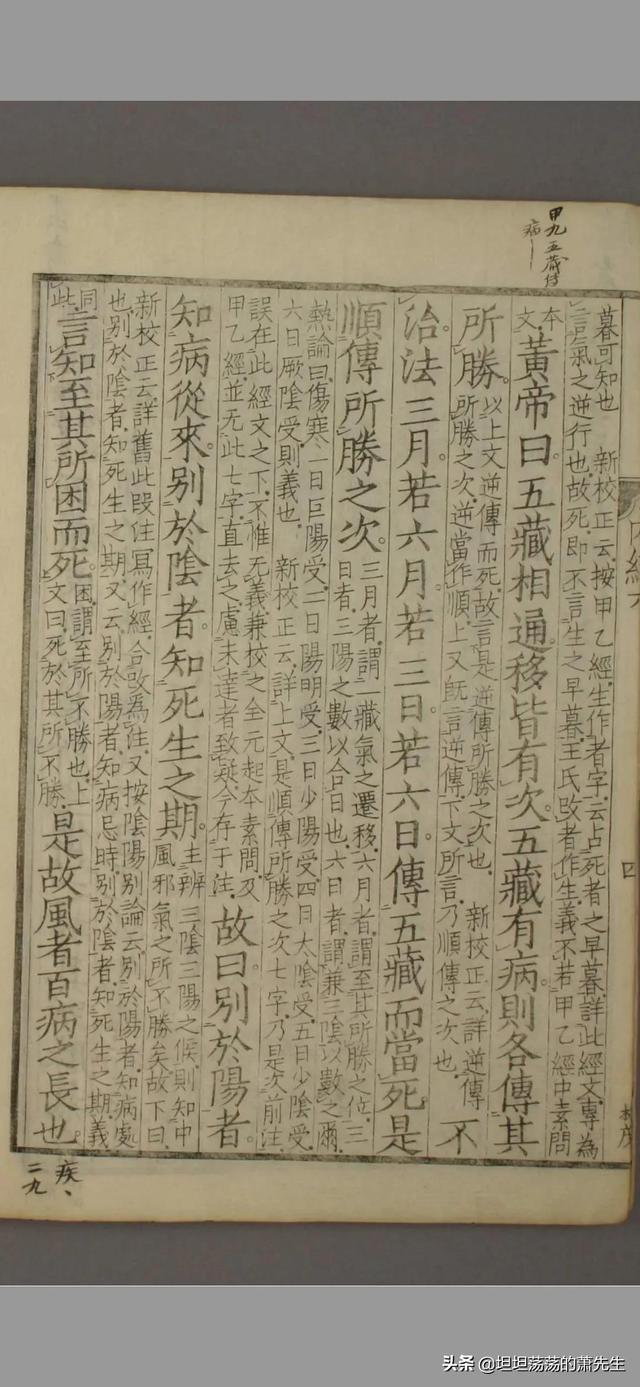 甲九五藏傳
病一
暮可知也　新校正云按甲乙經生作者字云占死者之早暮詳此經文專為
言氣之逆行也故死即不言生之早暮王氏改者作生義不若甲乙經中素問
本文
黃帝曰五藏相通移皆有次五藏有病則各傳其
所勝
以上文逆傳而死故言是逆傳所勝之次也　新校正云詳逆傳
所勝之次逆當作順上文既言逆傳下文所言乃順傳之次也
不
治法三月若六月若三日若六日傳五藏而當死是
順傳所勝之次
三月者謂一藏氣之遷移六月者謂至其所勝之位三
日者三陽之數以合日也六日者謂兼三陰以數之爾
熱論曰傷寒一日巨陽受二日陽明受三日少陽受四日太陰受五日少陰受
六日厥陰受則義也　新校正云詳上文是順傳所勝之次七字乃是次前注
誤在此經文之下不惟无義兼校之全元起本素問及
甲乙經並无此七字直去之慮未達者致疑今存于注
故曰別於陽者
知病從來別於陰者知死生之期
主辨三陰三陽之候則知中
風邪氣之所不勝矣故下曰
新校正云詳舊此段注寫作經合改為注又按陰陽別論云別於陽者知病處
也別於陰者知死生之期又云別於陽者知病忌時別於陰者知死生之期義
同此
言知至其所困而死
困謂至所不勝也上
文曰死於其所不勝
是故風者百病之長也
四
疾
二九
头条 @坦坦荡荡的萧先生